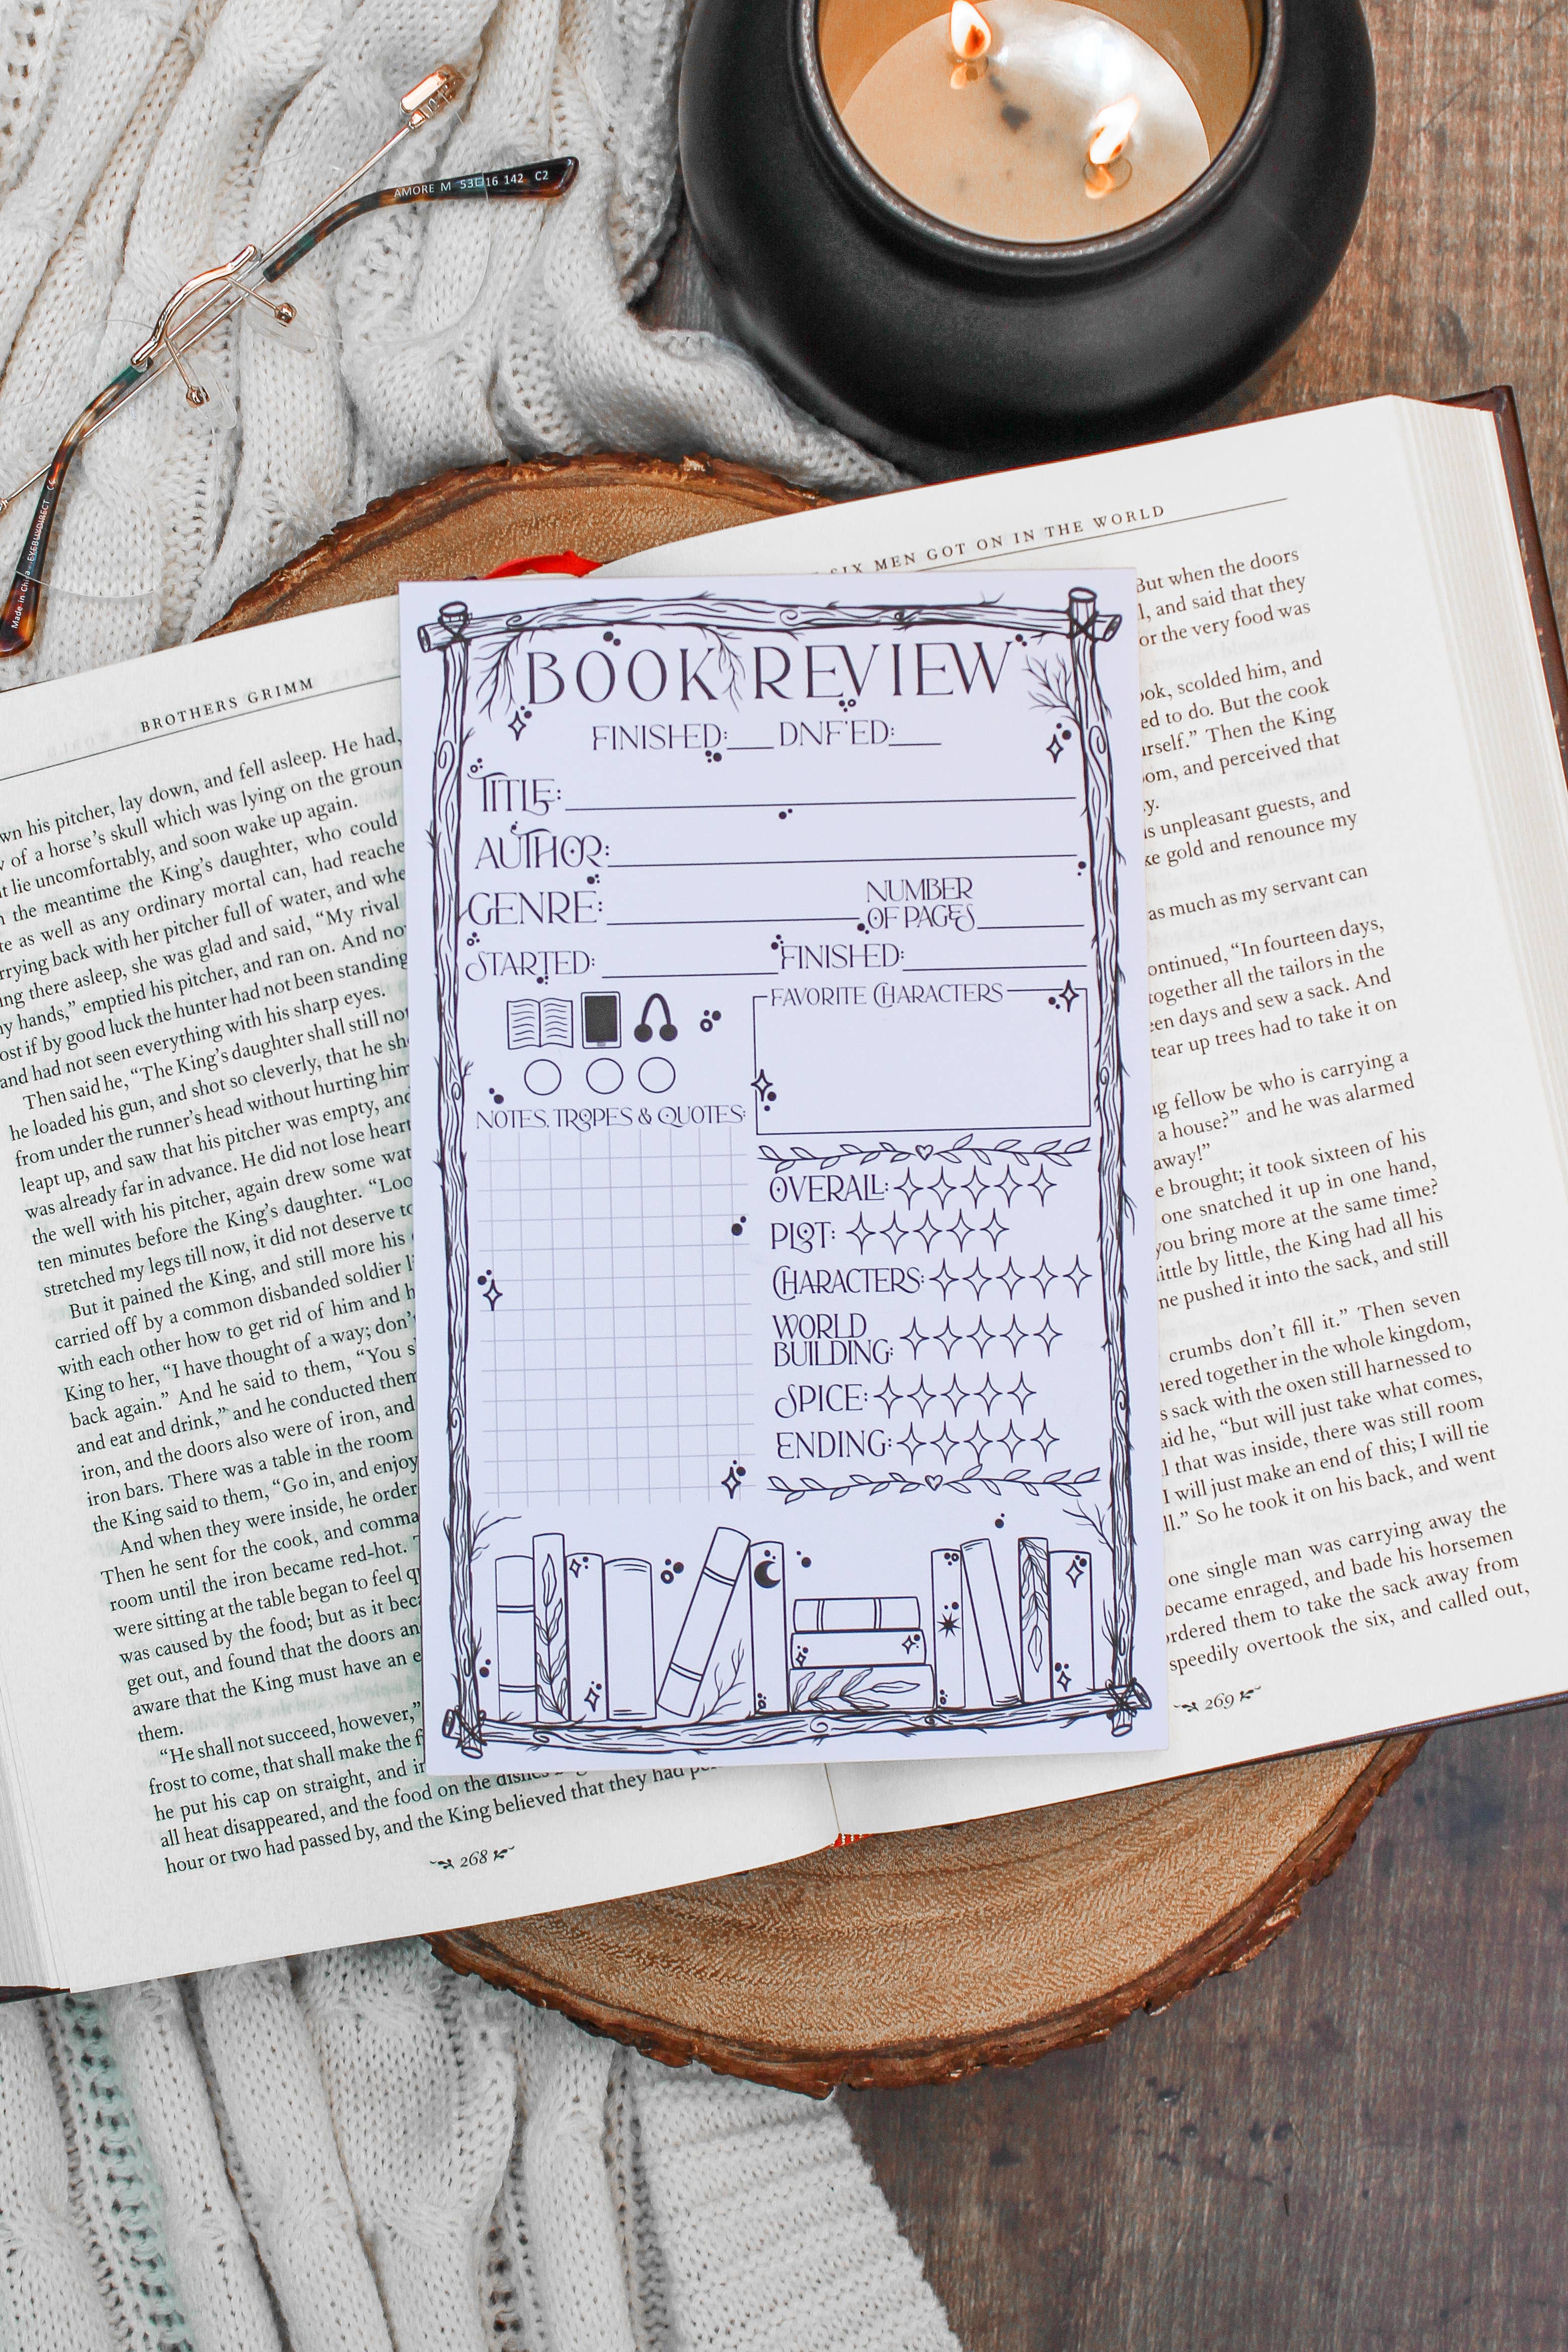 AMORE M 53 16 142 C2
Made in China EYEBUYDIRECT CE
BROTHERS GRIMM
his pitcher, lay down, and fell asleep. He had,
of a horse's skull which was lying on the
lie uncomfortably, and soon wake up again.
the meantime the King's daughter, who could
as well as any ordinary mortal can, had
back with her pitcher full of water, and
there asleep, she was glad and said, “My rival
hands,” emptied his pitcher, and ran on. And
if by good luck the hunter had not been standing
and had not seen everything with his sharp eyes.
Then said he, “The King's daughter shall still
he loaded his gun, and shot so cleverly, that he
from under the runner's head without hurting him
leapt up, and saw that his pitcher was empty, and
was already far in advance. He did not lose heart
the well with his pitcher, again drew some
ten minutes before the King's daughter.
stretched my legs till now, it did not deserve to
But it pained the King, and still more his
carried off by a common disbanded soldier
with each other how to get rid of him and
King to her, “I have thought of a way;
back again.” And he said to them, “You
and eat and drink,” and he conducted them
iron, and the doors also were of iron, and
iron bars. There was a table in the room
the King said to them, “Go in, and enjoy
And when they were inside, he
Then he sent for the cook, and
room until the iron became red-hot.
were sitting at the table began to feel
was caused by the food; but as it
get out, and found that the doors
aware that the King must have an
them.
“He shall not succeed, however,”
frost to come, that shall make the
he put his cap on straight, and
all heat disappeared, and the food on the dishes
hour or two had passed by, and the King believed that they had
268
SIX MEN GOT ON IN THE WORLD
But when the doors
and said that they
or the very food was
scolded him, and
to do. But the cook
Then the King
and perceived that
unpleasant guests, and
gold and renounce my
as much as my servant can
“In fourteen days,
together all the tailors in the
days and sew a sack. And
tear up trees had to take it on
fellow be who is carrying a
a house?” and he was alarmed
away!”
brought; it took sixteen of his
one snatched it up in one hand,
you bring more at the same time?
little by little, the King had all his
pushed it into the sack, and still
crumbs don't fill it.” Then seven
together in the whole kingdom,
sack with the oxen still harnessed to
he, “but will just take what comes,
that was inside, there was still room
I will just make an end of this; I will tie
So he took it on his back, and went
one single man was carrying away the
became enraged, and bade his horsemen
ordered them to take the sack away from
speedily overtook the six, and called out,
269
BOOK REVIEW
FINISHED:___ DNF'ED:___
TITLE:
AUTHOR:
GENRE: NUMBER
OF PAGES
STARTED: FINISHED:
FAVORITE CHARACTERS
NOTES, TROPES & QUOTES:
OVERALL:
PLOT:
CHARACTERS:
WORLD
BUILDING:
SPICE:
ENDING: